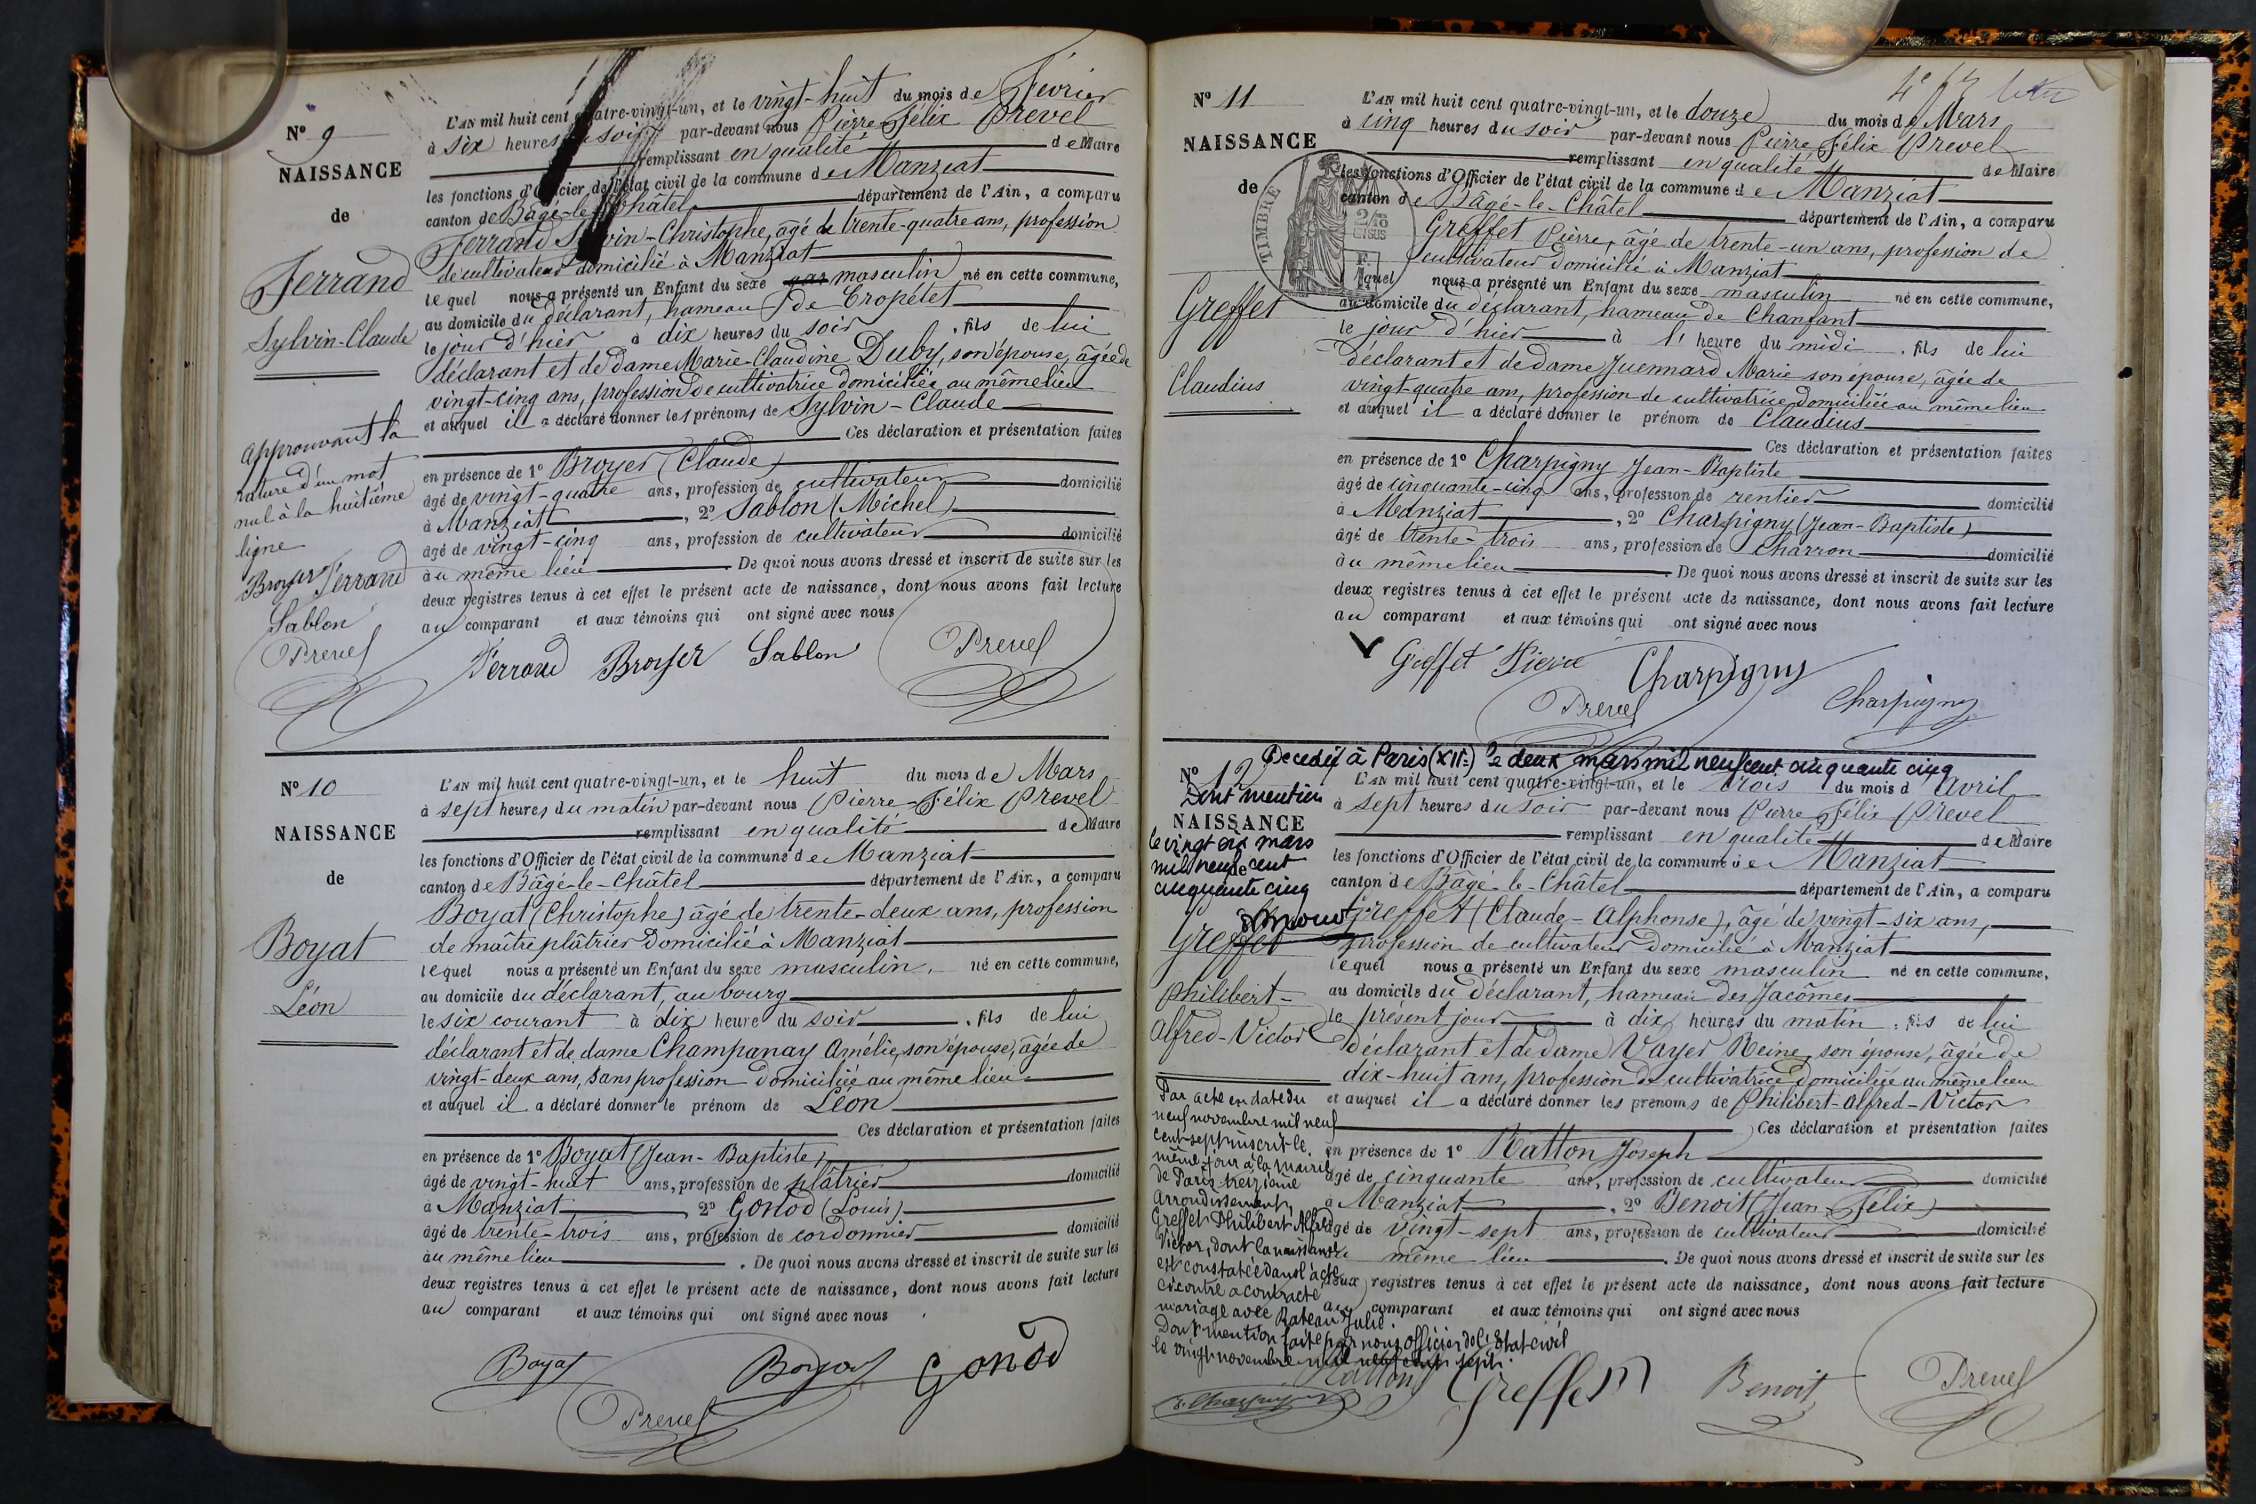 N° 9
NAISSANCE
de
Ferrand
Sylvin-Claude
approuvant la
rature d'un mot
nul à la huitième
ligne
Broyer Ferrand
Sablon
Prevel
L'AN mil huit cent quatre-vingt-un, et le vingt-huit du mois de Février
à six heures du soir par-devant nous Pierre Félix Prevel
remplissant en qualité de Maire
les fonctions d'Officier de l'état civil de la commune de Manziat
canton de Bâgé-le-Châtel département de l'Ain, a comparu
Ferrand Sylvin-Christophe, âgé de trente-quatre ans, profession
de cultivateur domicilié à Manziat
lequel nous a présenté un Enfant du sexe masculin né en cette commune,
au domicile du déclarant, hameau de Cropétet
le jour d'hier à dix heures du soir, fils de lui
déclarant et de dame Marie-Claudine Duby, son épouse, âgée de
vingt-cinq ans, profession de cultivatrice domiciliée au même lieu
et auquel il a déclaré donner les prénoms de Sylvin-Claude
Ces déclaration et présentation faites
en présence de 1° Broyer (Claude)
âgé de vingt-quatre ans, profession de cultivateur domicilié
à Manziat, 2° Sablon (Michel)
âgé de vingt-cinq ans, profession de cultivateur domicilié
au même lieu. De quoi nous avons dressé et inscrit de suite sur les
deux registres tenus à cet effet le présent acte de naissance, dont nous avons fait lecture
au comparant et aux témoins qui ont signé avec nous
Ferrand Broyer Sablon Prevel
N° 10
NAISSANCE
de
Boyat
Léon
L'AN mil huit cent quatre-vingt-un, et le huit du mois de Mars
à sept heures du matin par-devant nous Pierre-Félix Prevel
remplissant en qualité de Maire
les fonctions d'Officier de l'état civil de la commune de Manziat
canton de Bâgé-le-Châtel département de l'Ain, a comparu
Boyat (Christophe) âgé de trente-deux ans, profession
de maître plâtrier domicilié à Manziat
lequel nous a présenté un Enfant du sexe masculin, né en cette commune,
au domicile du déclarant, au bourg
le six courant à dix heure du soir, fils de lui
déclarant et de dame Champanay Amélie, son épouse, âgée de
vingt-deux ans, sans profession domiciliée au même lieu
et auquel il a déclaré donner le prénom de Léon
Ces déclaration et présentation faites
en présence de 1° Boyat (Jean-Baptiste)
âgé de vingt-huit ans, profession de plâtrier domicilié
à Manziat, 2° Gonod (Louis)
âgé de trente-trois ans, profession de cordonnier domicilié
au même lieu. De quoi nous avons dressé et inscrit de suite sur les
deux registres tenus à cet effet le présent acte de naissance, dont nous avons fait lecture
au comparant et aux témoins qui ont signé avec nous
Boyat Boyat Gonod
Prevel
N° 11
NAISSANCE
de
TIMBRE
Greffet
Claudius
L'AN mil huit cent quatre-vingt-un, et le douze du mois de Mars
à cinq heures du soir par-devant nous Pierre Félix Prevel
remplissant en qualité de Maire
les fonctions d'Officier de l'état civil de la commune de Manziat
canton de Bâgé-le-Châtel département de l'Ain, a comparu
Greffet Pierre, âgé de trente-un ans, profession de
cultivateur domicilié à Manziat
lequel nous a présenté un Enfant du sexe masculin né en cette commune,
au domicile du déclarant, hameau de Chanfant
le jour d'hier à l' heure du midi, fils de lui
déclarant et de dame Juennard Marie son épouse, âgée de
vingt-quatre ans, profession de cultivatrice domiciliée au même lieu
et auquel il a déclaré donner le prénom de Claudius
Ces déclaration et présentation faites
en présence de 1° Charpigny Jean-Baptiste
âgé de cinquante-cinq ans, profession de rentier domicilié
à Manziat, 2° Charpigny (Jean-Baptiste)
âgé de trente-trois ans, profession de charron domicilié
au même lieu. De quoi nous avons dressé et inscrit de suite sur les
deux registres tenus à cet effet le présent acte de naissance, dont nous avons fait lecture
au comparant et aux témoins qui ont signé avec nous
Greffet Pierre Charpigny
Prevel Charpigny
Decedé à Paris (XIIe) le deux mars mil neuf cent cinquante cinq
N° 12
Dont mention
NAISSANCE
le vingt six mars
mil neuf cent
de
cinquante cinq
Greffet
Philibert-
Alfred-Victor
Par acte en date du
neuf novembre mil neuf
cent sept inscrit le
même jour à la mairie
de Paris treizième
Arrondissement,
Greffet Philibert Alfred
Victor, dont la naissance
est constatée dans l'acte
ci-contre a contracté
mariage avec Rateau Julie.
Dont mention faite par nous officier de l'Etat civil
le vingt novembre mil neuf cent sept.
L'AN mil huit cent quatre-vingt-un, et le trois du mois d'Avril
à sept heures du soir par-devant nous Pierre Félix Prevel
remplissant en qualité de Maire
les fonctions d'Officier de l'état civil de la commune de Manziat
canton de Bâgé-le-Châtel département de l'Ain, a comparu
Greffet (Claude-Alphonse), âgé de vingt-six ans,
profession de cultivateur domicilié à Manziat
lequel nous a présenté un Enfant du sexe masculin né en cette commune,
au domicile du déclarant, hameau des Jacômes
le présent jour à dix heures du matin, fils de lui
déclarant et de dame Vayer Reine, son épouse, âgée de
dix-huit ans, profession de cultivatrice domiciliée au même lieu
et auquel il a déclaré donner les prénoms de Philibert-Alfred-Victor
Ces déclaration et présentation faites
en présence de 1° Ratton Joseph
âgé de cinquante ans, profession de cultivateur domicilié
à Manziat, 2° Benoit (Jean-Félix)
âgé de vingt-sept ans, profession de cultivateur domicilié
au même lieu. De quoi nous avons dressé et inscrit de suite sur les
deux registres tenus à cet effet le présent acte de naissance, dont nous avons fait lecture
au comparant et aux témoins qui ont signé avec nous
Ratton Greffet Benoit Prevel